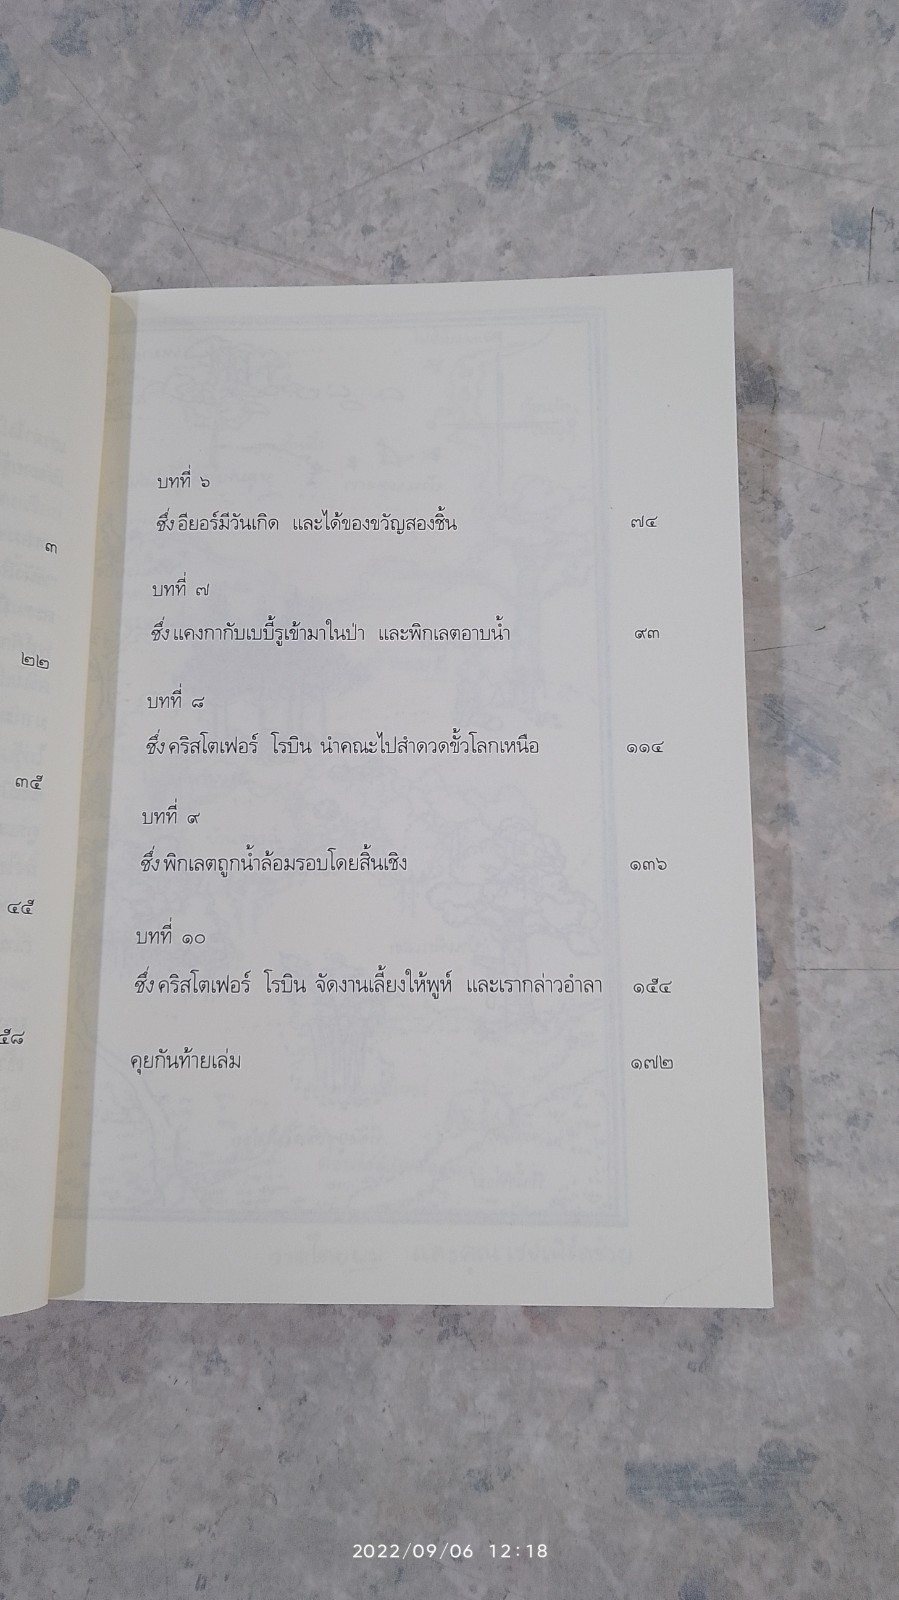 ๓
๒๒
๓๕
๔๕
๕๘
บทที่ ๖
ซึ่ง อียอร์มีวันเกิด และได้ของขวัญสองชิ้น ๗๔
บทที่ ๗
ซึ่ง แคงกากับเบบี้รูเข้ามาในป่า และพิกเลตอาบน้ำ ๙๓
บทที่ ๘
ซึ่ง คริสโตเฟอร์ โรบิน นำคณะไปสำดวดขั้วโลกเหนือ ๑๑๔
บทที่ ๙
ซึ่ง พิกเลตถูกน้ำล้อมรอบโดยสิ้นเชิง ๑๓๖
บทที่ ๑๐
ซึ่ง คริสโตเฟอร์ โรบิน จัดงานเลี้ยงให้พูห์ และเรากล่าวอำลา ๑๕๔
คุยกันท้ายเล่ม ๑๗๒
2022/09/06 12:18